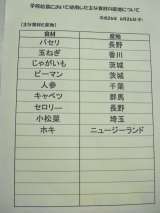 学校給食において使用した主な食材の産地について
平成26年 6月26日(木)
【主な食材の産地】
食材 産地
パセリ 長野
玉ねぎ 香川
じゃがいも 茨城
ピーマン 茨城
人参 千葉
キャベツ 群馬
セロリー 長野
小松菜 埼玉
ホキ ニュージーランド